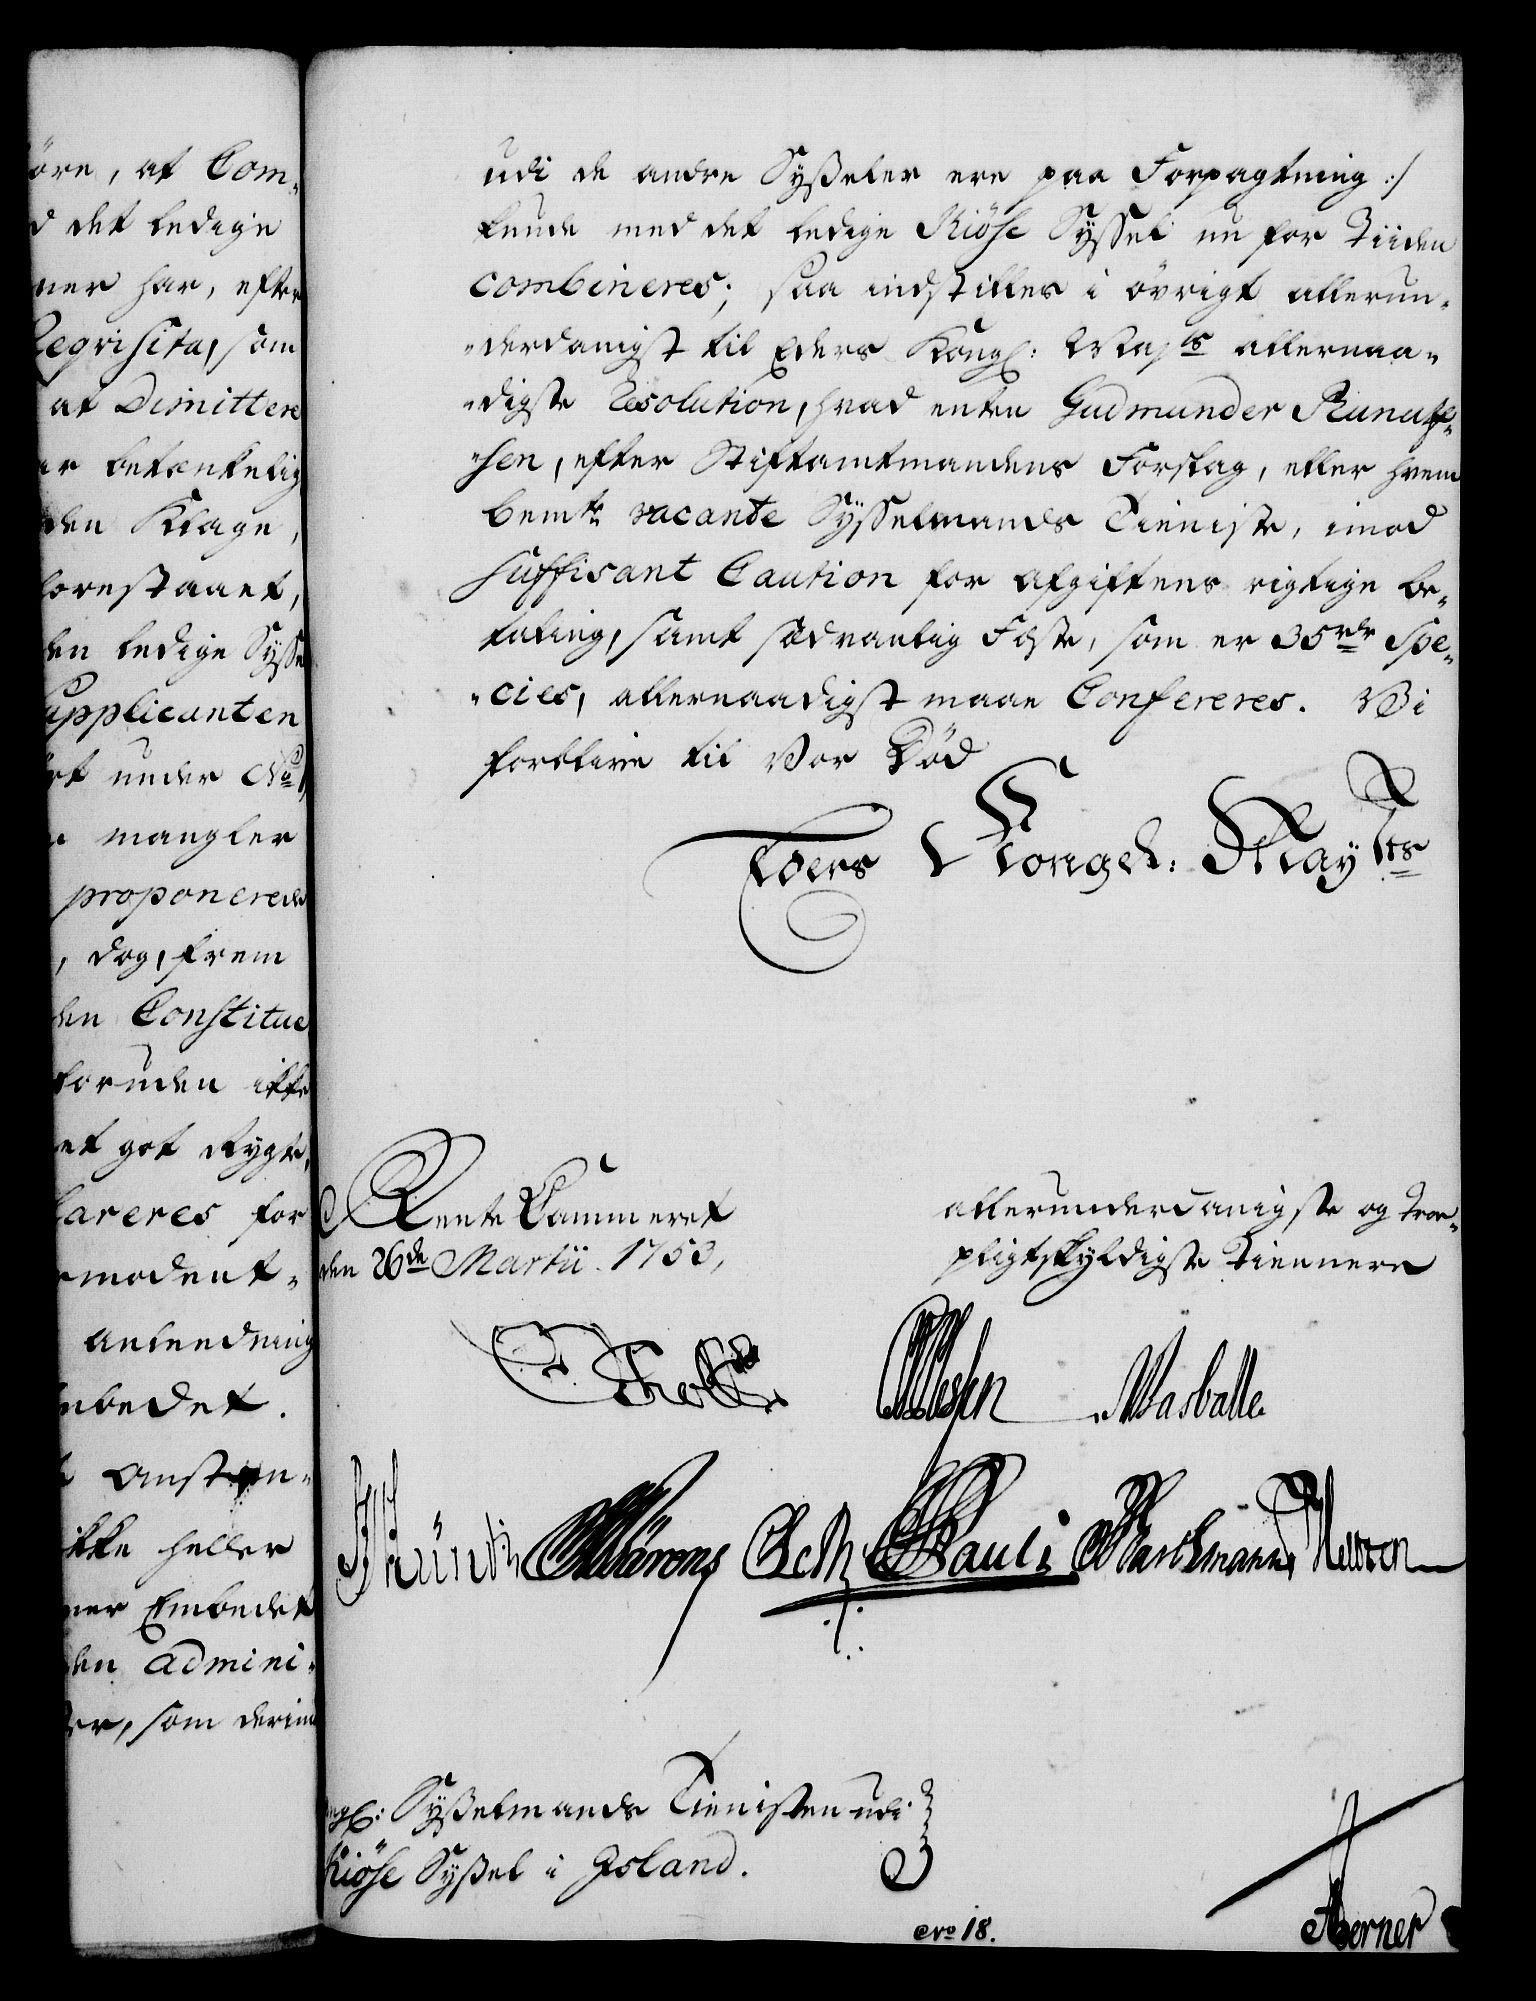 öre, at Com-
d det ledige
ner har, efter
Requisita, som
at Dimittere
er betænkelig
den Klage,
forestaaet,
den ledige Sysse
Supplicanten
under No
mangler
proponerede
, dog, frem
den Constitue
foruden ikke
et got Rygte,
lareres for
rmodent-
anleedning
mbedet.
Anstæn-
ikke heller
ner Embedet
den admini-
er, som derimo
udi de andre Sysseler ere paa Forpagtning :/
kunde med det ledige Kiöse Syssel nu for Tiiden
combineres; saa indstilles i övrigt allerun-
-derdanigst til Eders Kongl: Maj:ts allernaa-
-digste Resolution, hvad enten Gudmunder Runulf-
-sen, efter Stiftamtmandens Forslag, eller hvem
bemte vacante Sysselmands Tieniste, imod
suffisant Caution for Afgiftens rigtige be-
taling, samt sædvanlig Fæste, som er 35 rdr Spe-
-cies, allernaadigst maae Confereres. Vi
forblive til Vor Död
Eders Kongel: Mayts
Rente Cammeret
den 26de Martii 1753,
allerunderdanigste og troe-
pligtskyldigste Tiennere
Masballe
Pauli
Sysselmands Tienisten udi
Kiöse Syssel i Island.
No 18.